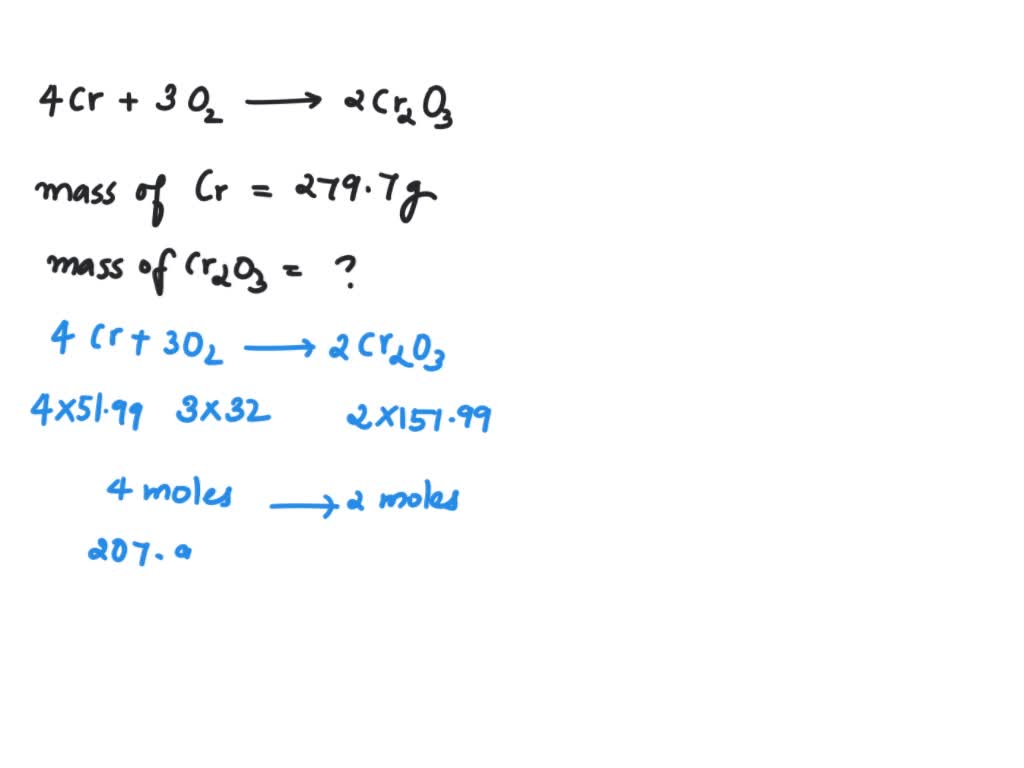 4Cr + 3O₂ ⟶ 2Cr₂O₃
mass of Cr = 279.7g
mass of Cr₂O₃ = ?
4Cr + 3O₂ ⟶ 2Cr₂O₃
4×51.99 3×32 2×157.99
4 moles ⟶ 2 moles
207.